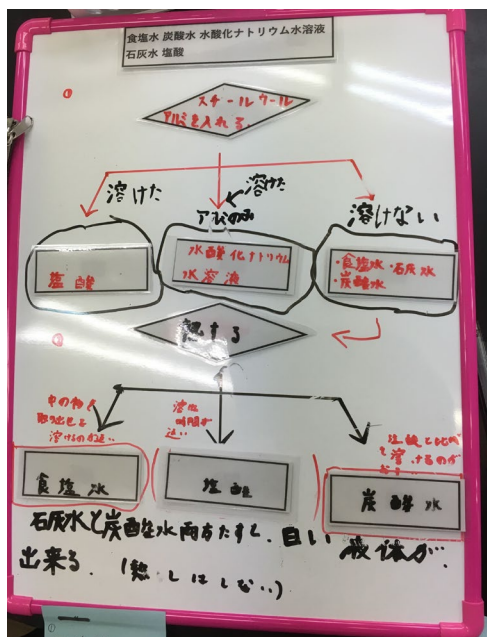 食塩水 炭酸水 水酸化ナトリウム水溶液
石灰水 塩酸
スチールウール
アルミを入れる
溶けた
溶けた
アルミのみ
溶けない
塩酸
水酸化ナトリウム
水溶液
・食塩水・石灰水
・炭酸水
熱する
中の物を
取り出せる
溶けるのが
時間が
塩酸と
溶けるのが
食塩水
塩酸
炭酸水
石灰水と炭酸水両方たすと、白い液体が
出来る。